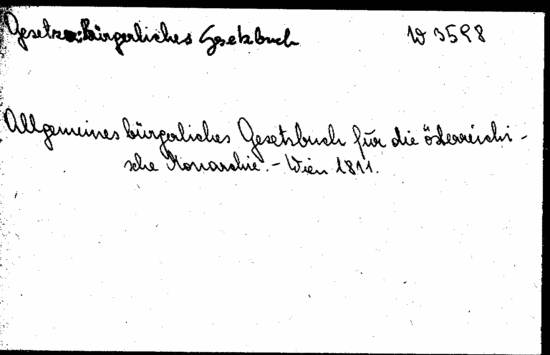 Gesetze: bürgerliches Gesetzbuch W 3598
Allgemeines bürgerliches Gesetzbuch für die österreichi-
sche Monarchie. - Wien 1811.